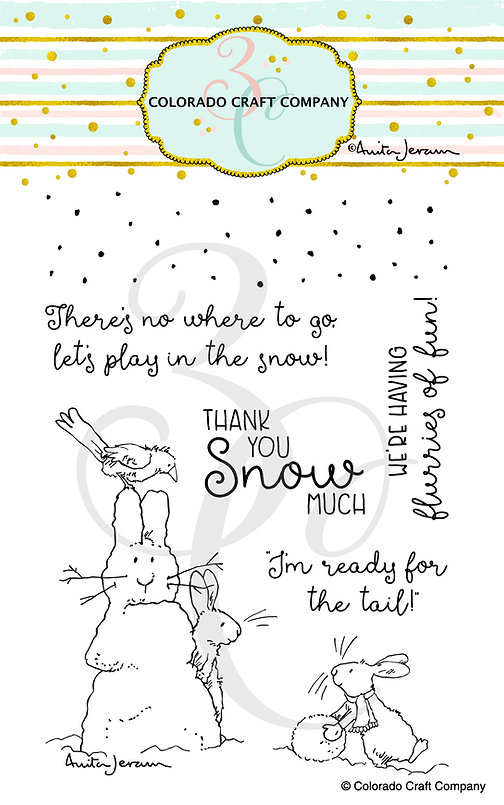 3C
COLORADO CRAFT COMPANY
©Anita Jeram
There's no where to go,
let's play in the snow!
WE'RE HAVING
flurries of fun!
THANK
YOU
Snow
MUCH
"I'm ready for
the tail!"
Anita Jeram
© Colorado Craft Company
3C